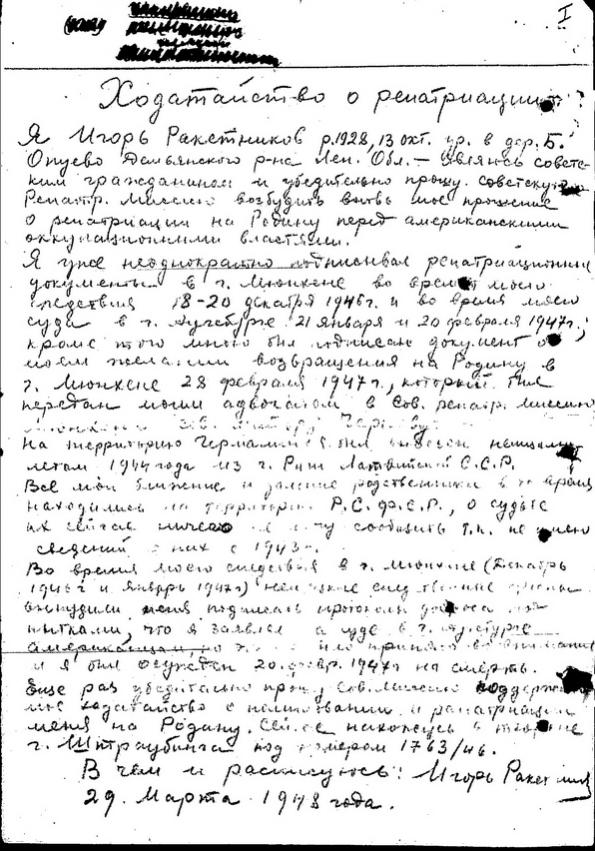 I
Ходатайство о репатриации
Я Игорь Ракетников р. 1928, 13 окт. ур. в дер. Б.
Опуево Демьянского р-на Лен. Обл. – являясь советс-
ким гражданином и убедительно прошу советскую
Репатр. Миссию возбудить вновь мое прошение
о репатриации на Родину перед американскими
оккупационными властями.
Я уже неоднократно подписывал репатриационные
документы в г. Мюнхене во время моего
следствия 18-20 декабря 1946 г. и во время моего
суда в г. Аугсбурге 21 января и 20 февраля 1947 г.,
кроме того мною был подписан документ о
моем желании возвращения на Родину в
г. Мюнхене 28 февраля 1947 г., который был
передан моим адвокатом в Сов. репатр. миссию
На территорию Германии я был вывезен немцами
летом 1944 года из г. Риги Латвийской С.С.Р.
Все мои ближние и дальние родственники в то время
находились на территории Р.С.Ф.С.Р., о судьбе
их сейчас ничего не могу сообщить т.к. не имею
сведений о них с 1943 г.
Во время моего следствия в г. Мюнхене (Декабрь
1946 г и Январь 1947 г) немецкие следственные органы
вынудили меня подписать протоколы допроса
пытками, что я заявлял на суде в г. Аугсбурге
американцам, но принято во внимание
и я был осужден 20 февр. 1947 г на смерть.
Еще раз убедительно прошу Сов. Миссию поддержать
мое ходатайство о помиловании и репатриации
меня на Родину. Сейчас нахожусь в тюрьме
г. Штраубинга под номером 1763/46.
В чем и расписуюсь: Игорь Ракетников
29. Марта 1948 года.